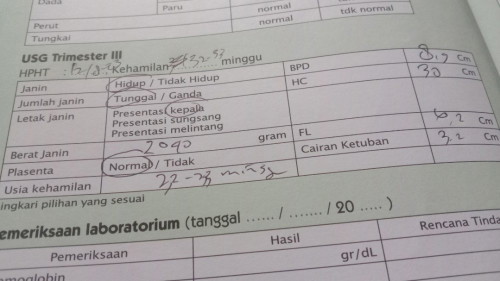 Dada
Paru normal
Perut normal tdk normal
Tungkai
USG Trimester III
HPHT : Kehamilan 32-33 minggu
Janin Hidup / Tidak Hidup BPD 8,2 Cm
Jumlah janin Tunggal / Ganda HC 30 Cm
Letak janin Presentasi kepala
Presentasi sungsang
Presentasi melintang
Berat Janin 2040 gram FL 6,2 Cm
Plasenta Normal / Tidak Cairan Ketuban 3,2 Cm
Usia kehamilan 32-33 minggu
ingkari pilihan yang sesuai
emeriksaan laboratorium (tanggal ...... / ....... / 20 ..... )
Pemeriksaan Hasil Rencana Tinda
emoglobin gr/dL